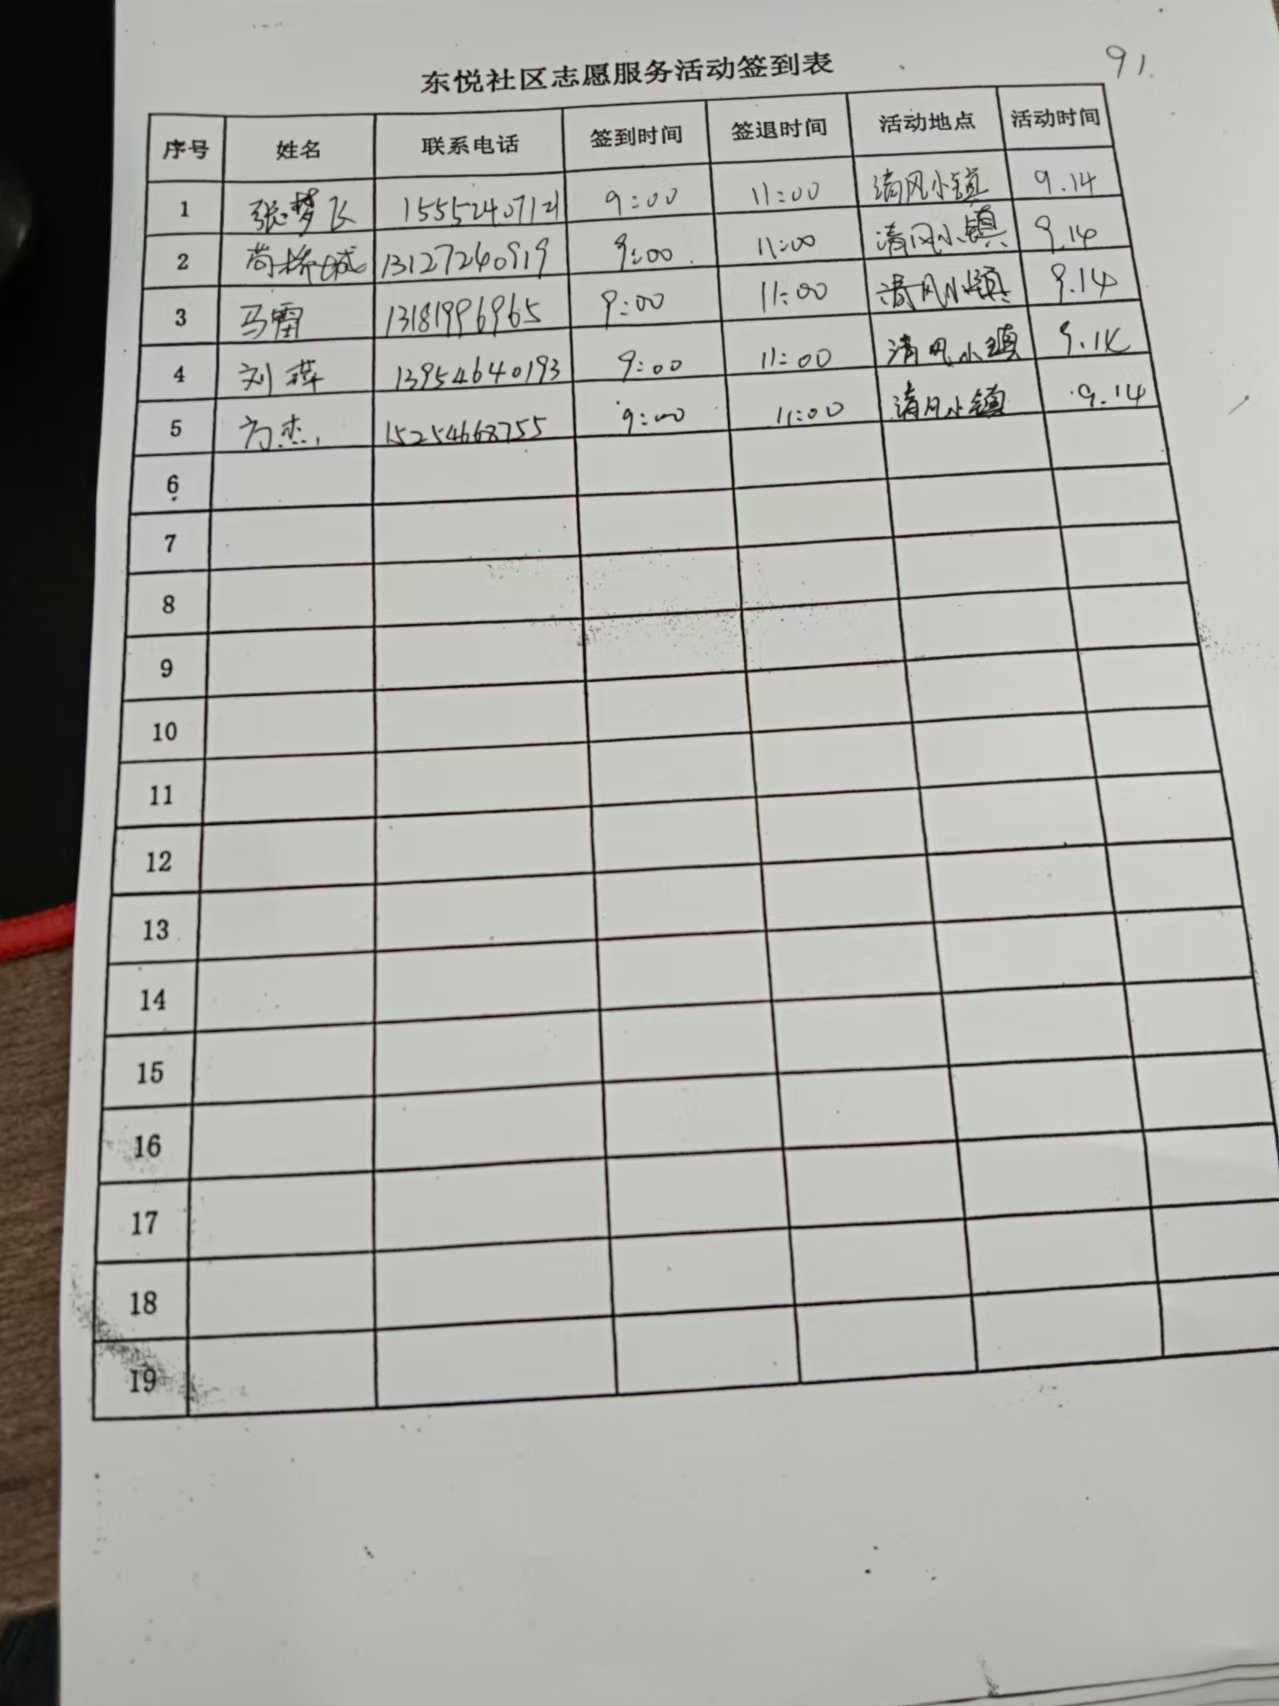 91.
东悦社区志愿服务活动签到表
序号 姓名 联系电话 签到时间 签退时间 活动地点 活动时间
1 张梦飞 15552407121 9:00 11:00 清风小镇 9.14
2 13127240919 9:00 11:00 清风小镇 9.14
3 马雷 13181996965 9:00 11:00 清风小镇 9.14
4 刘萍 13954640193 9:00 11:00 清风小镇 9.14
5 15254668755 9:00 11:00 清风小镇 9.14
6
7
8
9
10
11
12
13
14
15
16
17
18
19